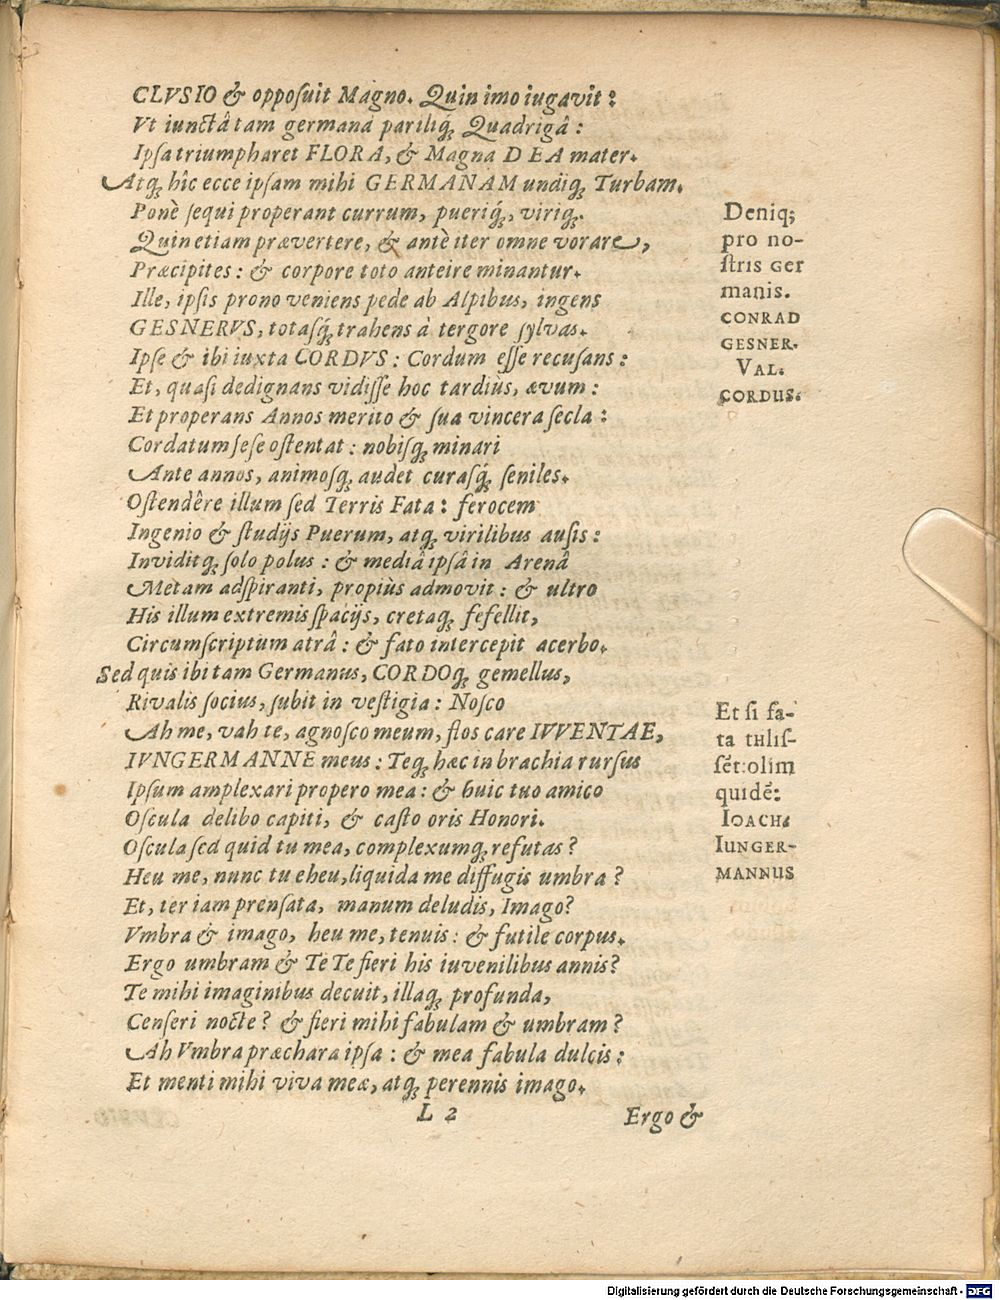 CLVSIO & opposuit Magno. Quin imo iugavit:
Vt iunctâ tam germanâ parilíq́; Quadrigâ:
Ipsa triumpharet FLORA, & Magna DEA mater.
Atq; hîc ecce ipsam mihi GERMANAM undiq; Turbam.
Ponè sequi properant currum, pueríq́;, viríq;.
Quin etiam prævertere, & antè iter omne vorare,
Præcipites: & corpore toto anteire minantur.
Ille, ipsis prono veniens pede ab Alpibus, ingens
GESNERVS, totasq́; trahens à tergore sylvas.
Ipse & ibi iuxta CORDVS: Cordum esse recusans:
Et, quasi dedignans vidisse hoc tardiùs, ævum:
Et properans Annos merito & sua vincera secla:
Cordatum sese ostentat: nobisq; minari
Ante annos, animosq; audet curasq́; seniles.
Ostendêre illum sed Terris Fata: ferocem
Ingenio & studijs Puerum, atq; virilibus ausis:
Inviditq; solo polus: & mediâ ipsâ in Arenâ
Metam adspiranti, propiùs admovit: & ultro
His illum extremis spacijs, cretaq; fefellit,
Circumscriptum atrâ: & fato intercepit acerbo.
Sed quis ibi tam Germanus, CORDOq; gemellus,
Rivalis socius, subit in vestigia: Nosco
Ah me, vah te, agnosco meum, flos care IVVENTAE,
IVNGERMANNE meus: Teq; hæc in brachia rursus
Ipsum amplexari propero mea: & huic tuo amico
Oscula delibo capiti, & casto oris Honori.
Oscula sed quid tu mea, complexumq; refutas?
Heu me, nunc tu eheu, liquida me diffugis umbra?
Et, ter iam prensata, manum deludis, Imago?
Vmbra & imago, heu me, tenuis: & futile corpus.
Ergo umbram & Te Te fieri his iuvenilibus annis?
Te mihi imaginibus decuit, illaq; profunda,
Censeri nocte? & fieri mihi fabulam & umbram?
Ah Vmbra præchara ipsa: & mea fabula dulcis:
Et menti mihi viva meæ, atq; perennis imago.
L 2 Ergo &
Deniq;
pro no-
stris Ger
manis.
CONRAD
GESNER.
VAL.
CORDUS.
Et si fa-
ta tulis-
sēt: olim
quidē:
IOACH.
IUNGER-
MANNUS
Digitalisierung gefördert durch die Deutsche Forschungsgemeinschaft - DFG